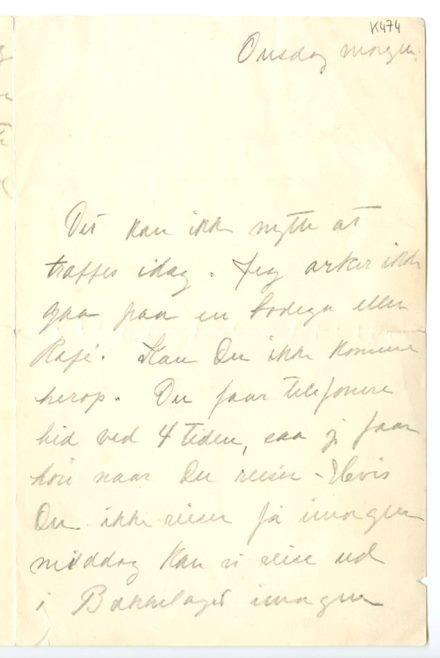 K474
Onsdag morgen.
Det kan ikke nytte at
træffes idag. Jeg orker ikke
gaa paa en bodega eller
Kafé. Kan Du ikke komme
herop. Du faar telefonere
hid ved 4 tiden, saa jeg faar
høre naar Du reiser - Hvis
Du ikke reiser før imorgen
middag kan vi reise ud
i Bækkelaget imorgen